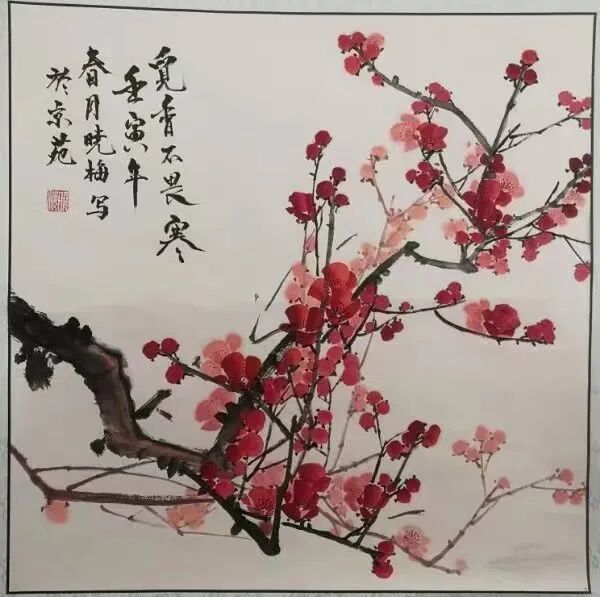 觅香不畏寒
壬寅年
春月晓梅写
於京苑